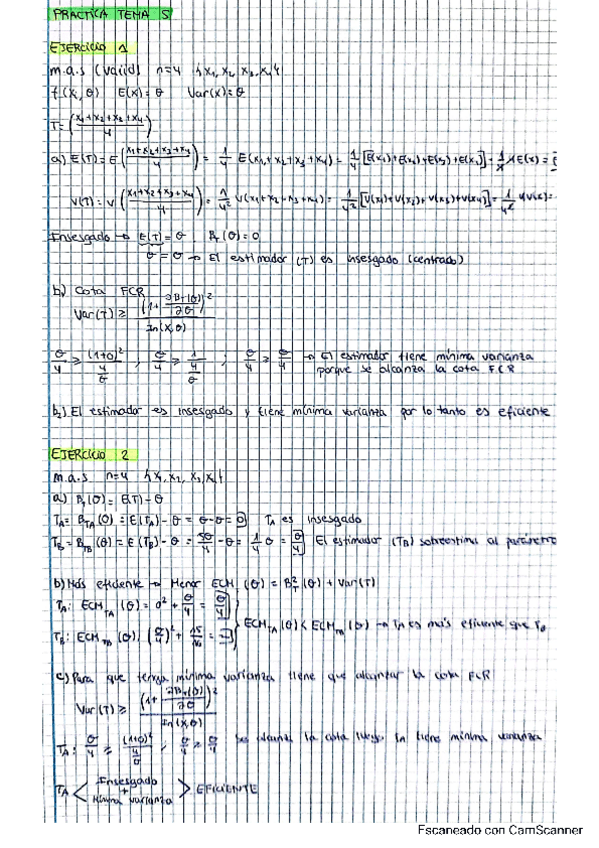 PRACTICA TEMA 5
EJERCICIO 1
m.a.s (vaiid) n=4 {x1, x2, x3, x4}
f(x, θ) E(x)=θ Var(x)=θ
T= (x1+x2+x3+x4 / 4)
a) E(T)= E (x1+x2+x3+x4 / 4) = 1/4 E(x1+x2+x3+x4) = 1/4 [E(x1)+E(x2)+E(x3)+E(x4)] = 1/4 4E(x) =
V(T)= V (x1+x2+x3+x4 / 4) = 1/4² V(x1+x2+x3+x4) = 1/4² [V(x1)+V(x2)+V(x3)+V(x4)] = 1/4² 4V(x)=
Insesgado → E(T)= θ , BT(θ)=0
θ = θ → El estimador (T) es insesgado (centrado)
b) Cota FCR
Var(T) ≥ (1+ ∂BT(θ)/∂θ)² / In(x,θ)
θ/4 ≥ (1+0)² / 4/θ ; θ/4 ≥ 1 / 4/θ ; θ/4 ≥ θ/4 → El estimador tiene mínima varianza
porque se alcanza la cota FCR
b2) El estimador es insesgado y tiene mínima varianza por lo tanto es eficiente
EJERCICIO 2
m.a.s n=4 {x1, x2, x3, x4}
a) BT(θ) = E(T) - θ
TA= BTA(θ) = E(TA) - θ = θ-θ = 0 TA es insesgado
TB= BTB(θ) = E(TB) - θ = 5θ/4 - θ = 1/4 θ = θ/4 El estimador (TB) sobreestima al parámetro
b) Más eficiente → Menor ECMT(θ) = B²T(θ) + Var(T)
TA: ECMTA(θ) = 0² + θ/4 = θ/4
TB: ECMTB(θ) (θ/4)² +
ECMTA(θ) < ECMTB(θ) → TA es más eficiente que TB
c) Para que tenga mínima varianza tiene que alcanzar la cota FCR
Var(T) ≥ (1+ ∂BT(θ)/∂θ)² / In(x,θ)
TA: θ/4 ≥ (1+0)² / 4/θ ; θ/4 ≥ θ/4 se alcanza la cota luego tiene mínima varianza
TA < Insesgado + Mínima varianza > EFICIENTE
Escaneado con CamScanner